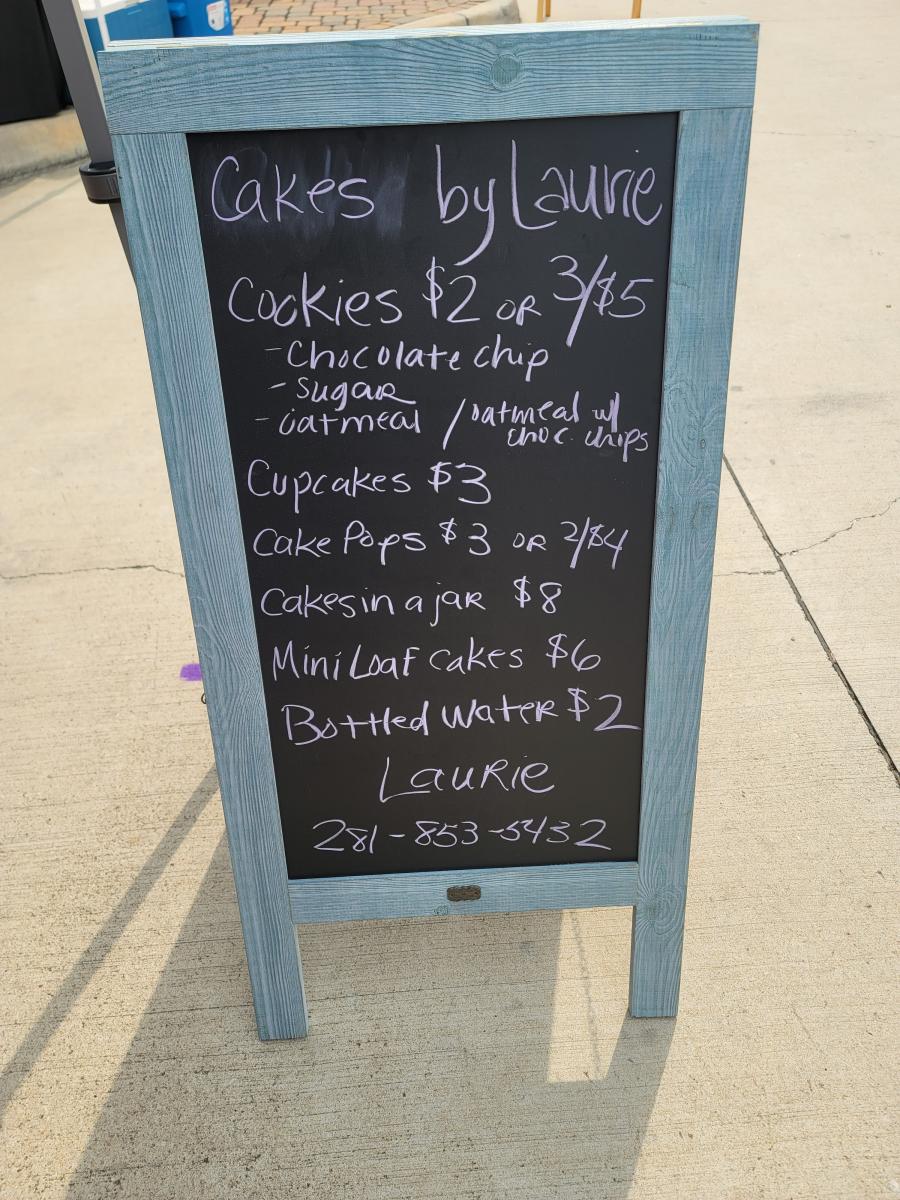 Cakes by Laurie
Cookies $2 OR 3/$5
- Chocolate chip
- sugar
- oatmeal / oatmeal w/
choc. chips
Cupcakes $3
Cake Pops $3 OR 2/$4
Cakes in a jar $8
Mini Loaf cakes $6
Bottled Water $2
Laurie
281-853-5432